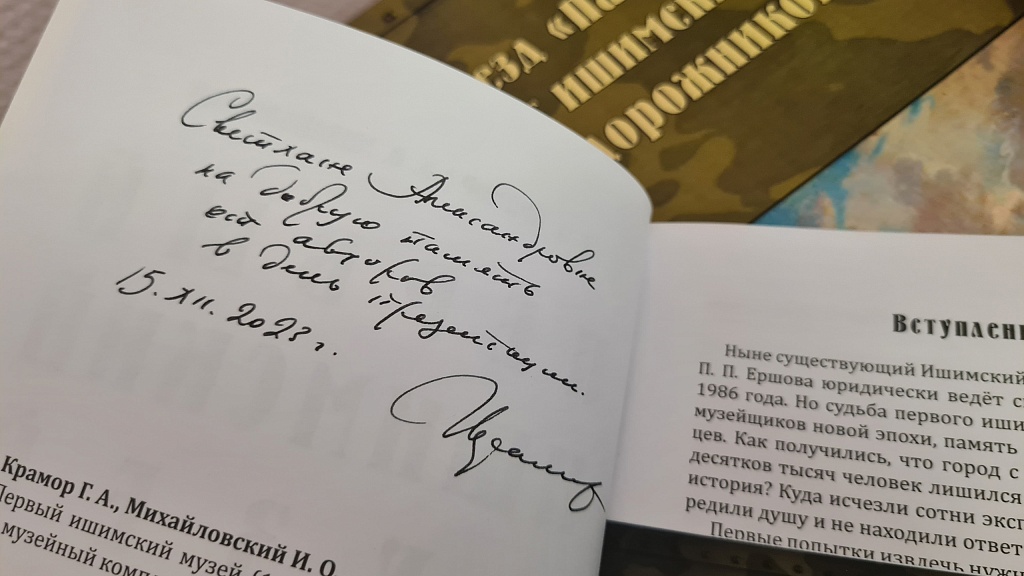 ЕЗД «ПА
ИШИМСКИ
ДОРОЖНИКО
Светлане Александровне
на добрую память
от авторов
в день презентации.
15. XII. 2023 г.
Крамор Г. А., Михайловский И. О.
Первый ишимский музей (1
музейный комп
Вступлени
Ныне существующий Ишимский
П. П. Ершова юридически ведёт с
1986 года. Но судьба первого иши
музейщиков новой эпохи, память
цев. Как получилось, что город с
десятков тысяч человек лишился
история? Куда исчезли сотни эксп
редили душу и не находили ответ
Первые попытки извлечь нужн